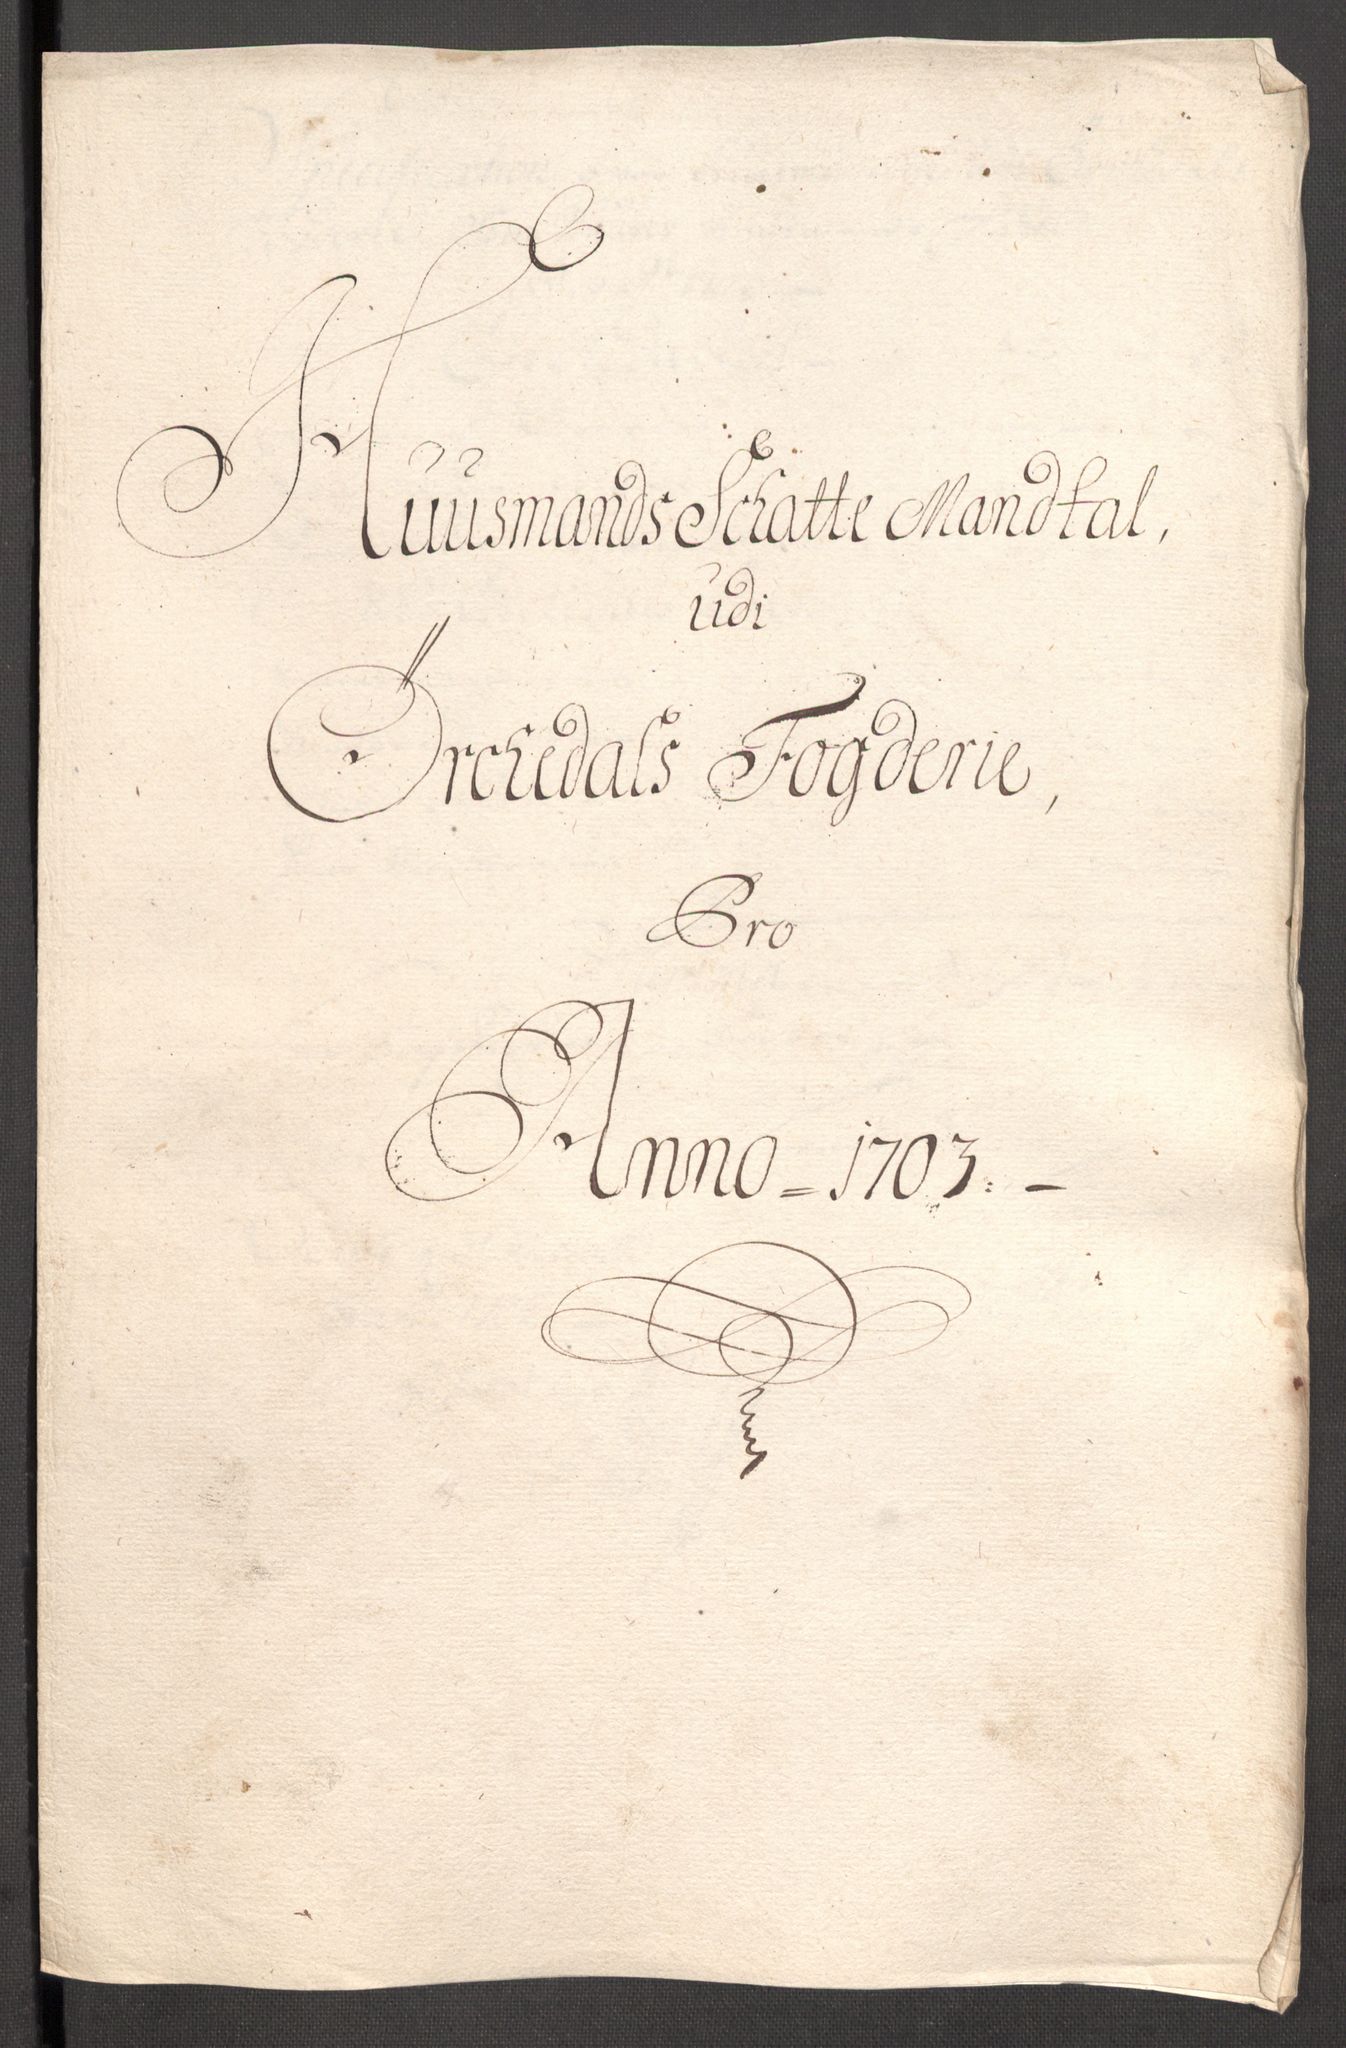 Huusmands Schatte Mandtal,
udi
Örchedals Fogderie,
Pro
Anno = 1703. –